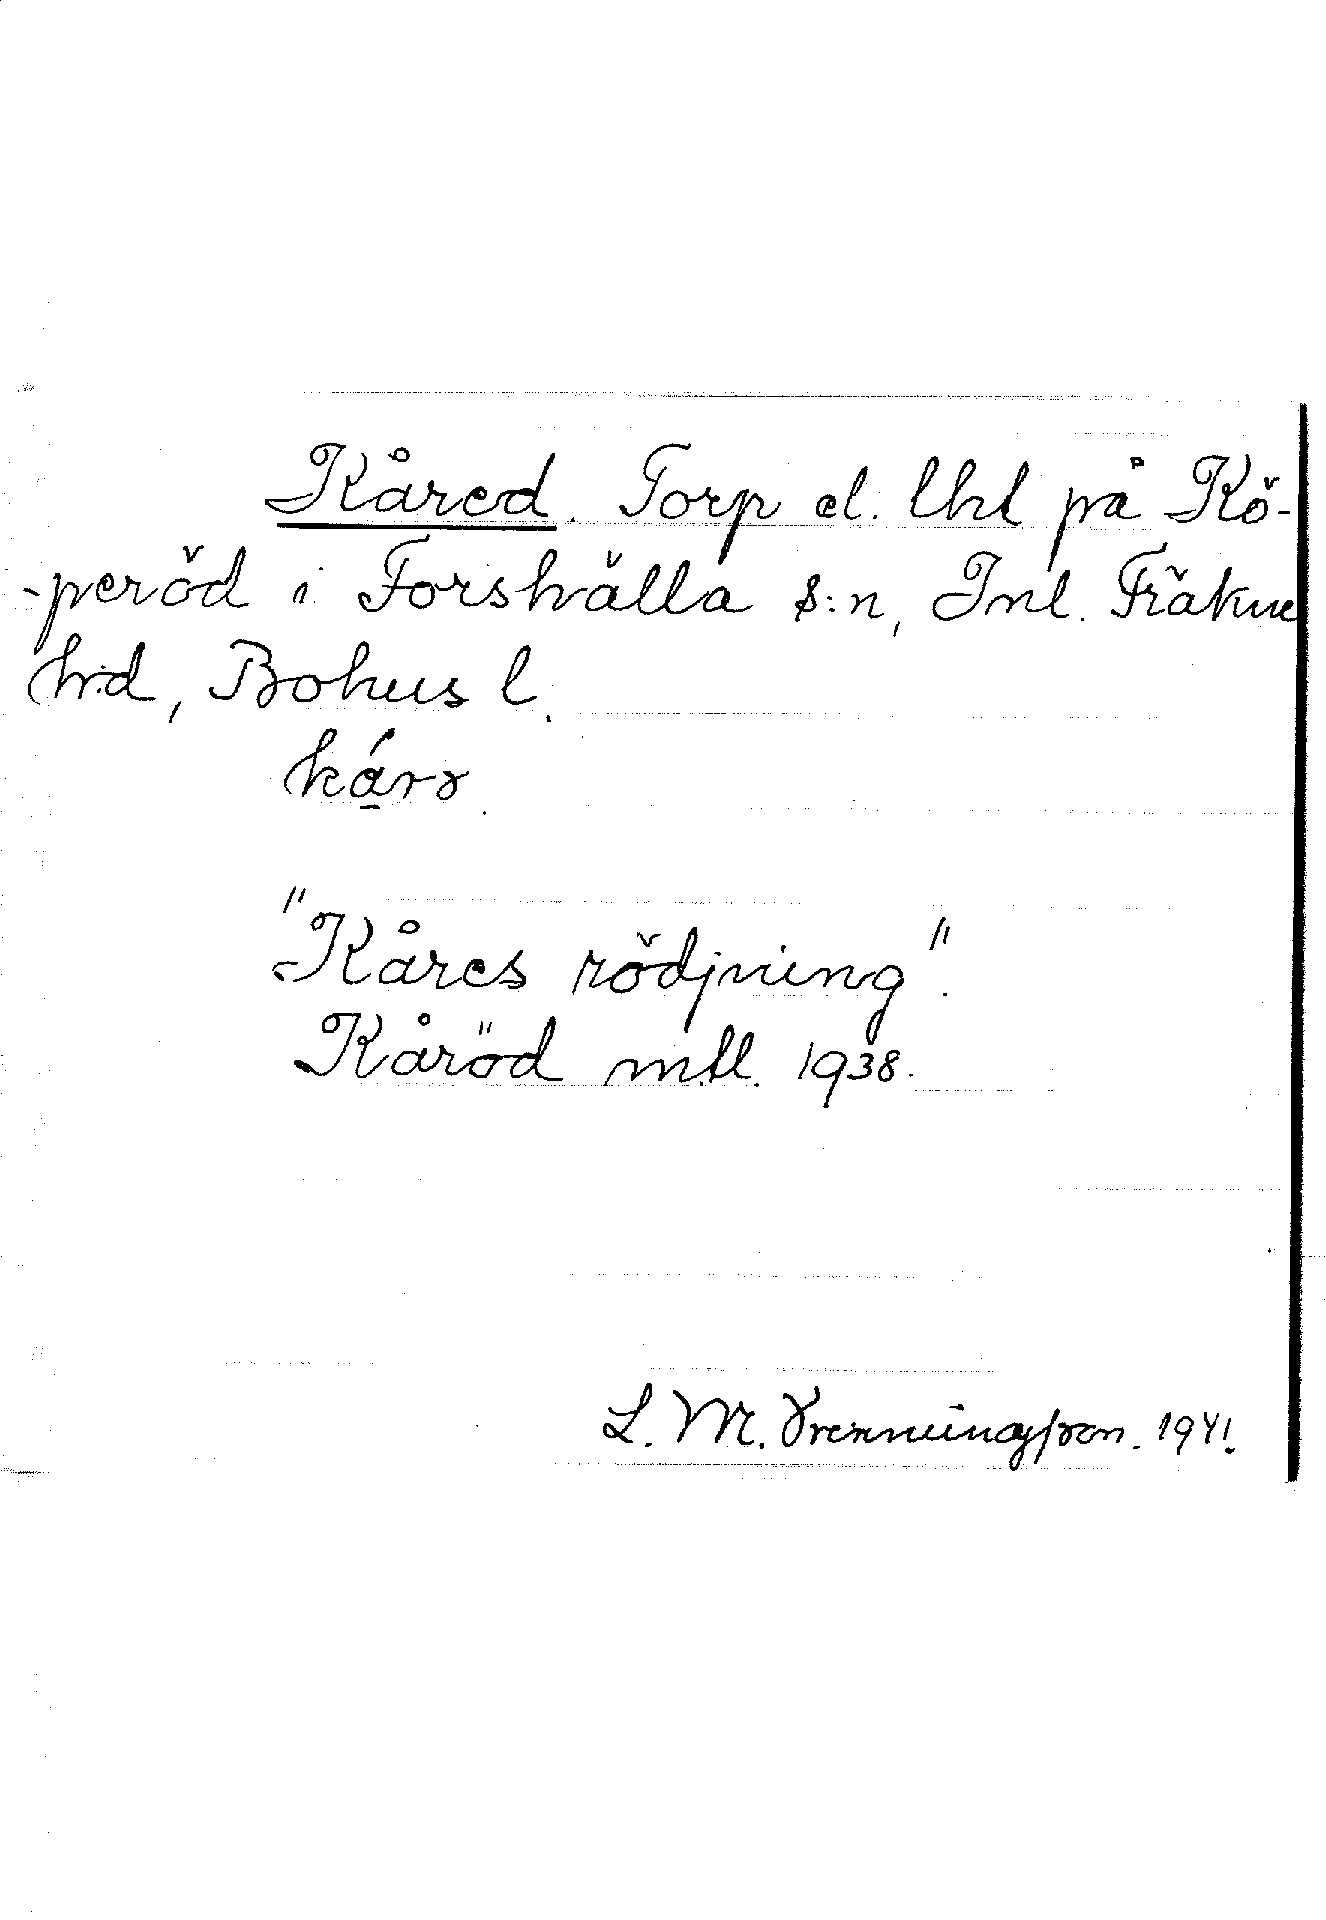 Kåred. Torp el. lht på Kö-
-peröd i Forshälla s:n, Inl. Fräkne
h:d, Bohus l.
"Kåres rödjning".
Kåröd mtl. 1938.
L. M. Svenningsson. 1941.